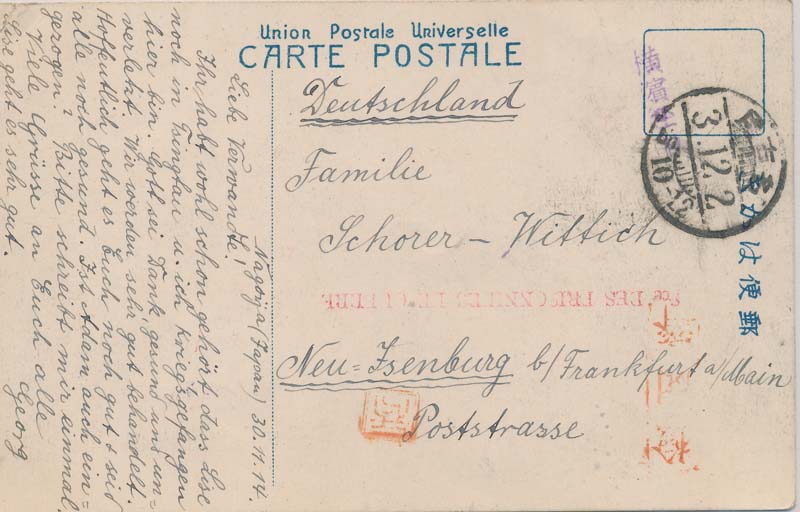 Union Postale Universelle
CARTE POSTALE
Deutschland
Familie
Schorer-Wittich
Neu=Isenburg b/Frankfurt a/Main
Poststrasse
郵便はがき
3.12.2
10-12
Sce DES PRISONNIERS DE GUERRE
Nagoya (Japan) 30.11.14.
Liebe Verwandte!
Ihr habt wohl schon gehört dass Lise
noch in Tsingtau u. ich kriegsgefangen
hier bin. Gott sei Dank gesund und un=
verletzt. Wir werden sehr gut behandelt.
Hoffentlich geht es Euch noch gut & seid
alle noch gesund. Ist Adam auch ein=
gezogen? Bitte schreibt mir einmal.
Viele Grüsse an Euch alle
Georg
Lise geht es sehr gut.